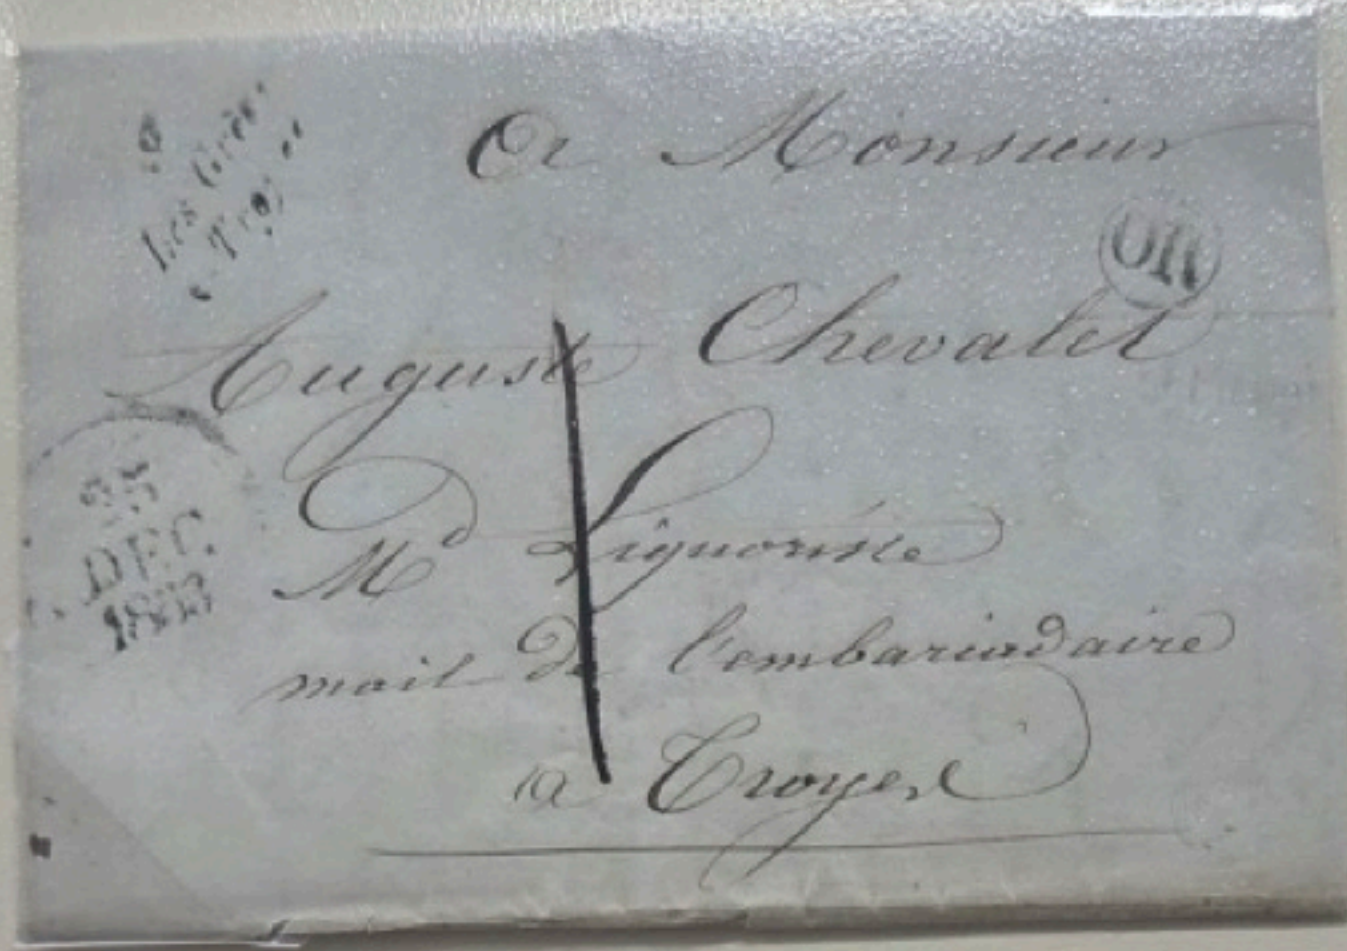 9
Les Grès
Troy
A Monsieur
OR
Auguste Chevalet
25
DEC
1833
Md Liquoriste
mail de l'embariadaire
a Troyes